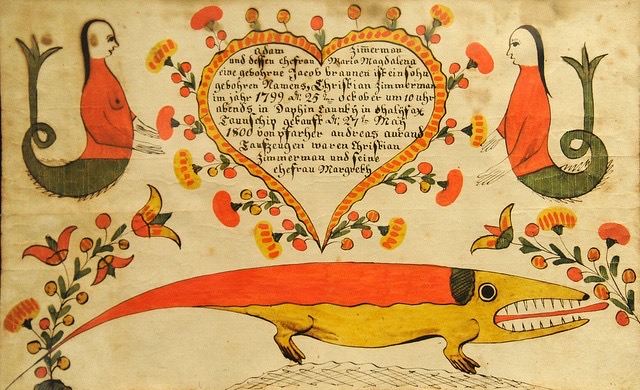 adam Zimerman
und dessen ehefrau Maria Magdalena
eine gebohrne Jacob braunen ist ein sohn
gebohren Namens, Christian Zimmerman
im jahr 1799 d. 25ten october um 10 uhr
abends in Daphin Caunty in Shalifax
Taunschip getauft d. 27te May
1800 von pfarher andreas aurand
Taufzeugen waren Christian
Zimmerman und seine
ehefrau Margreth